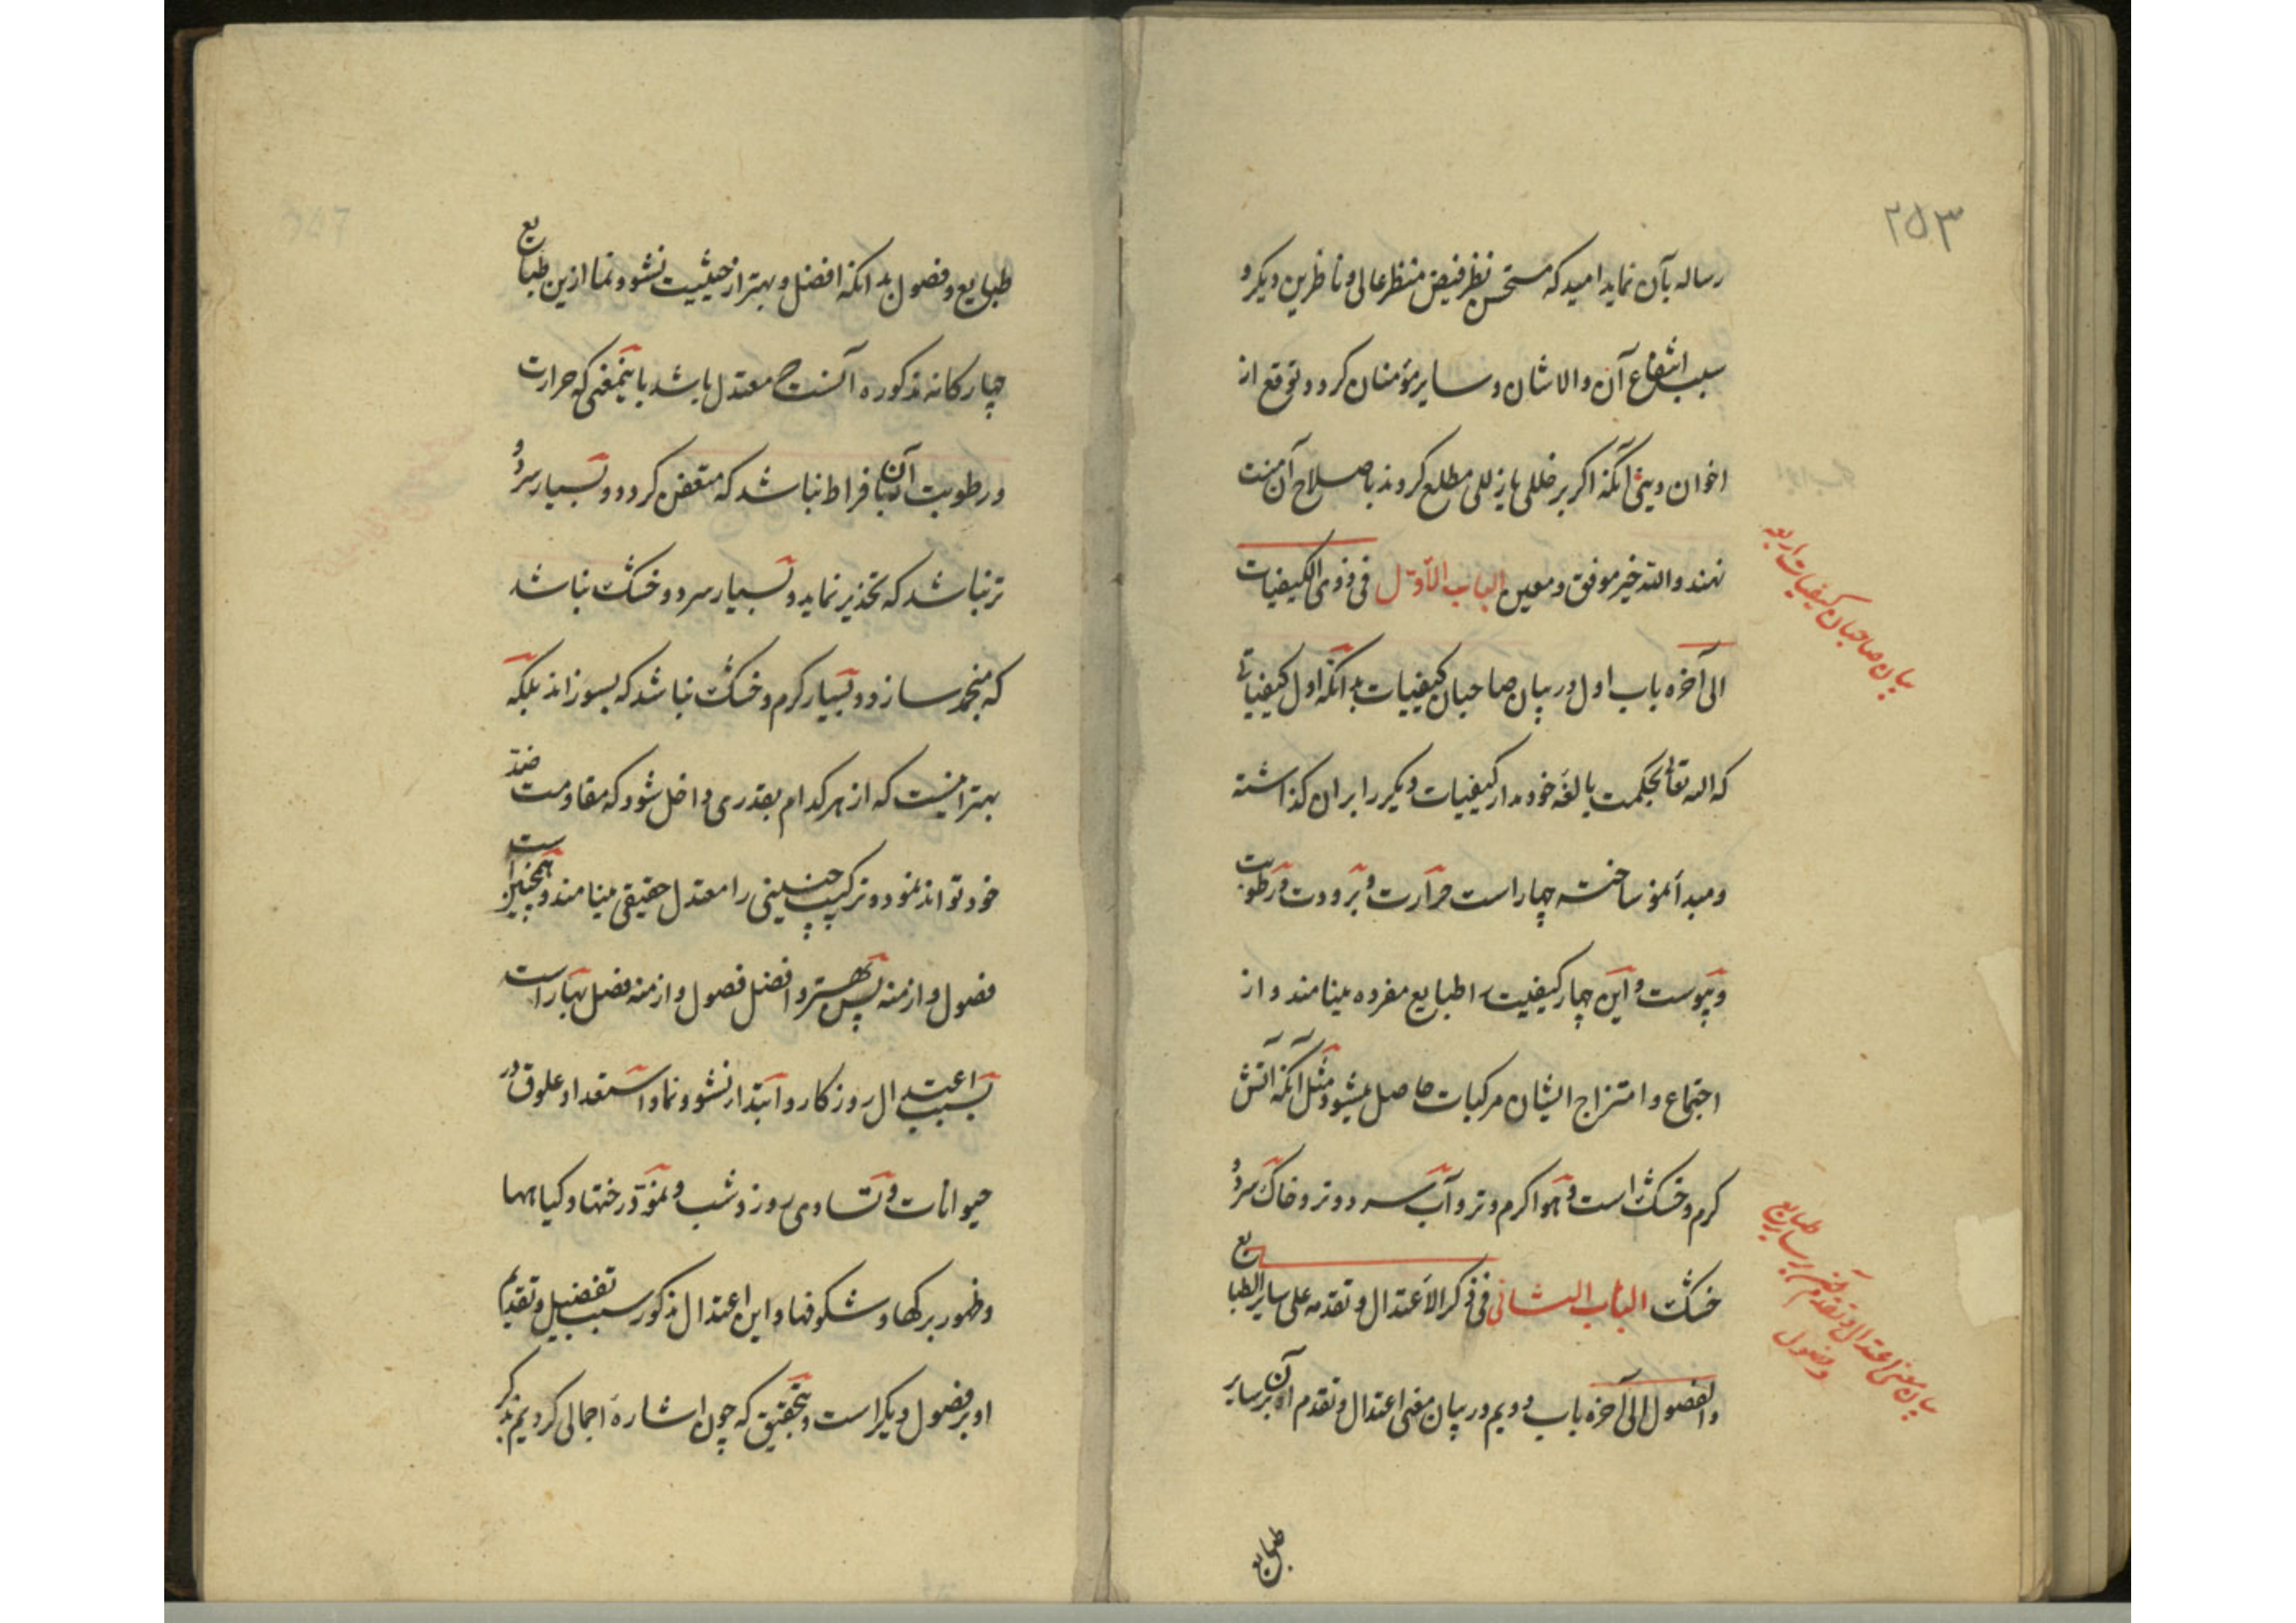 ۲۵۳
رساله بآن نماید امید که مستحسن نظر فیض منظر عالی و ناظرین دیکر و
سبب انتفاع آن والاشان و سایر مؤمنان کردد و توقع از
اخوان دینی آنکه اکر بر خللی یا زللی مطلع کردند باصلاح آن منت
نهند والله خیر موفق و معین الباب الأول فی ذوی الکیفیات
الی آخره باب اول در بیان صاحبان کیفیات بدانکه اول کیفیاتی
که الله تعالی بحکمت بالغه خود مدار کیفیات دیکر را بران کذاشته
و مبدأ نمو ساخته چهار است حرارت و برودت و رطوبت
و یبوست و این چهار کیفیت را طبایع مفرده مینامند و از
اجتماع و امتزاج ایشان مرکبات حاصل میشود مثل آنکه آتش
کرم و خشک است و هوا کرم و تر و آب سرد و تر و خاک سرد و
خشک الباب الثانی فی ذکر الأعتدال و تقدمه علی سایر الطبایع
والفصول الی آخره باب دویم در بیان معنی اعتدال و تقدم آن بر سایر
طبایع
بیان صاحبان کیفیات اربعه
بیان معنی اعتدال و تقدم آن بر سایر طبایع
و فصول
طبایع و فصول بدانکه افضل و بهتر از حیثیت نشو و نما ازین طبایع
چهارکانه مذکوره آنست که معتدل باشد باینمعنی که حرارت
و رطوبت آن بافراط نباشد که متعفن کردد و بسیار سرد و
تر نباشد که تخدیر نماید و بسیار سرد و خشک نباشد
که منجمد سازد و بسیار کرم و خشک نباشد که بسوزاند بلکه
بهتر اینست که از هر کدام بقدری داخل شود که مقاومت ضد
خود تواند نمود و ترکیب چنینی را معتدل حقیقی مینامند و همچنین است
فصول و ازمنه پس بهتر و افضل فصول و ازمنه فصل بهار است
بسبب اعتدال روزکار و ابتدا نشو و نما و استعداد علوق در
حیوانات و تساوی روز و شب و نمو درختها و کیاهها
و ظهور برکها و شکوفها و این اعتدال مذکور سبب تفضیل و تقدیم
او بر فصول دیکر است و بتحقیق که چون اشاره اجمالی کردیم بذکر